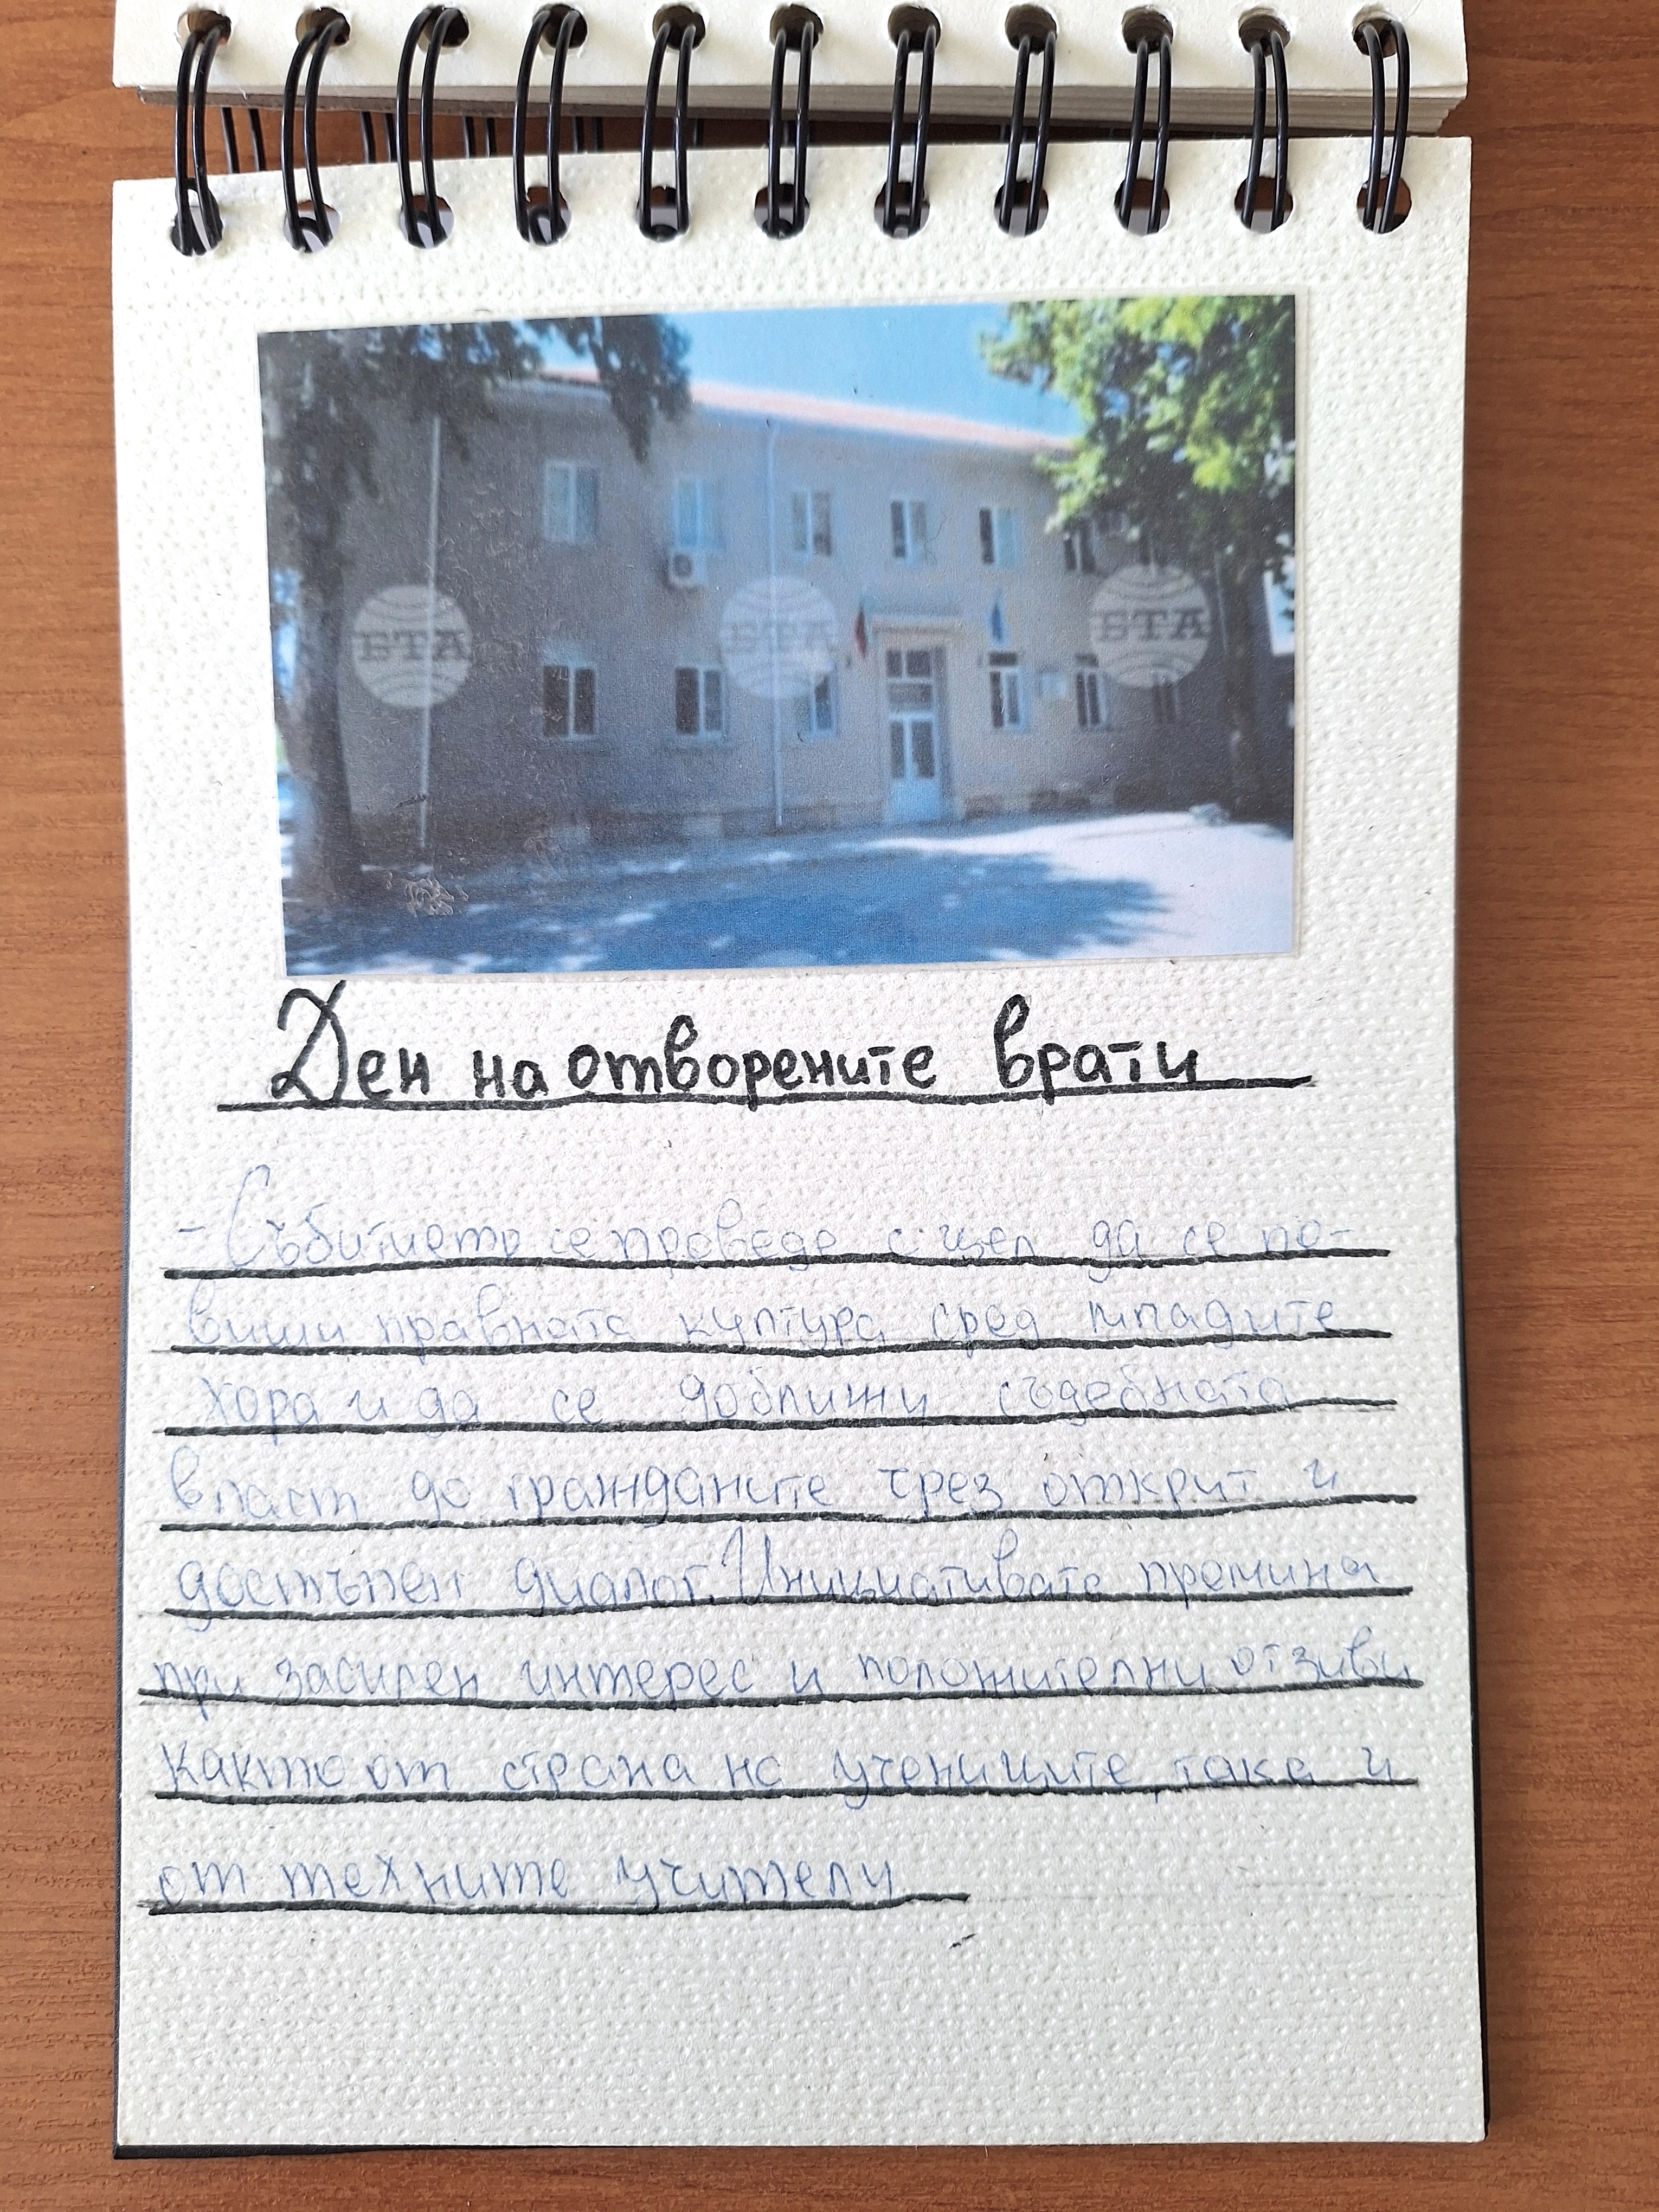 БТА БТА БТА
Ден на отворените врати
- Събитието се проведе с цел да се по-
виши правната култура сред младите
хора и да се доближи съдебната
власт до гражданите чрез открит и
достъпен диалог. Инициативата премина
при засилен интерес и положителни отзиви
както от страна на учениците, така и
от техните учители